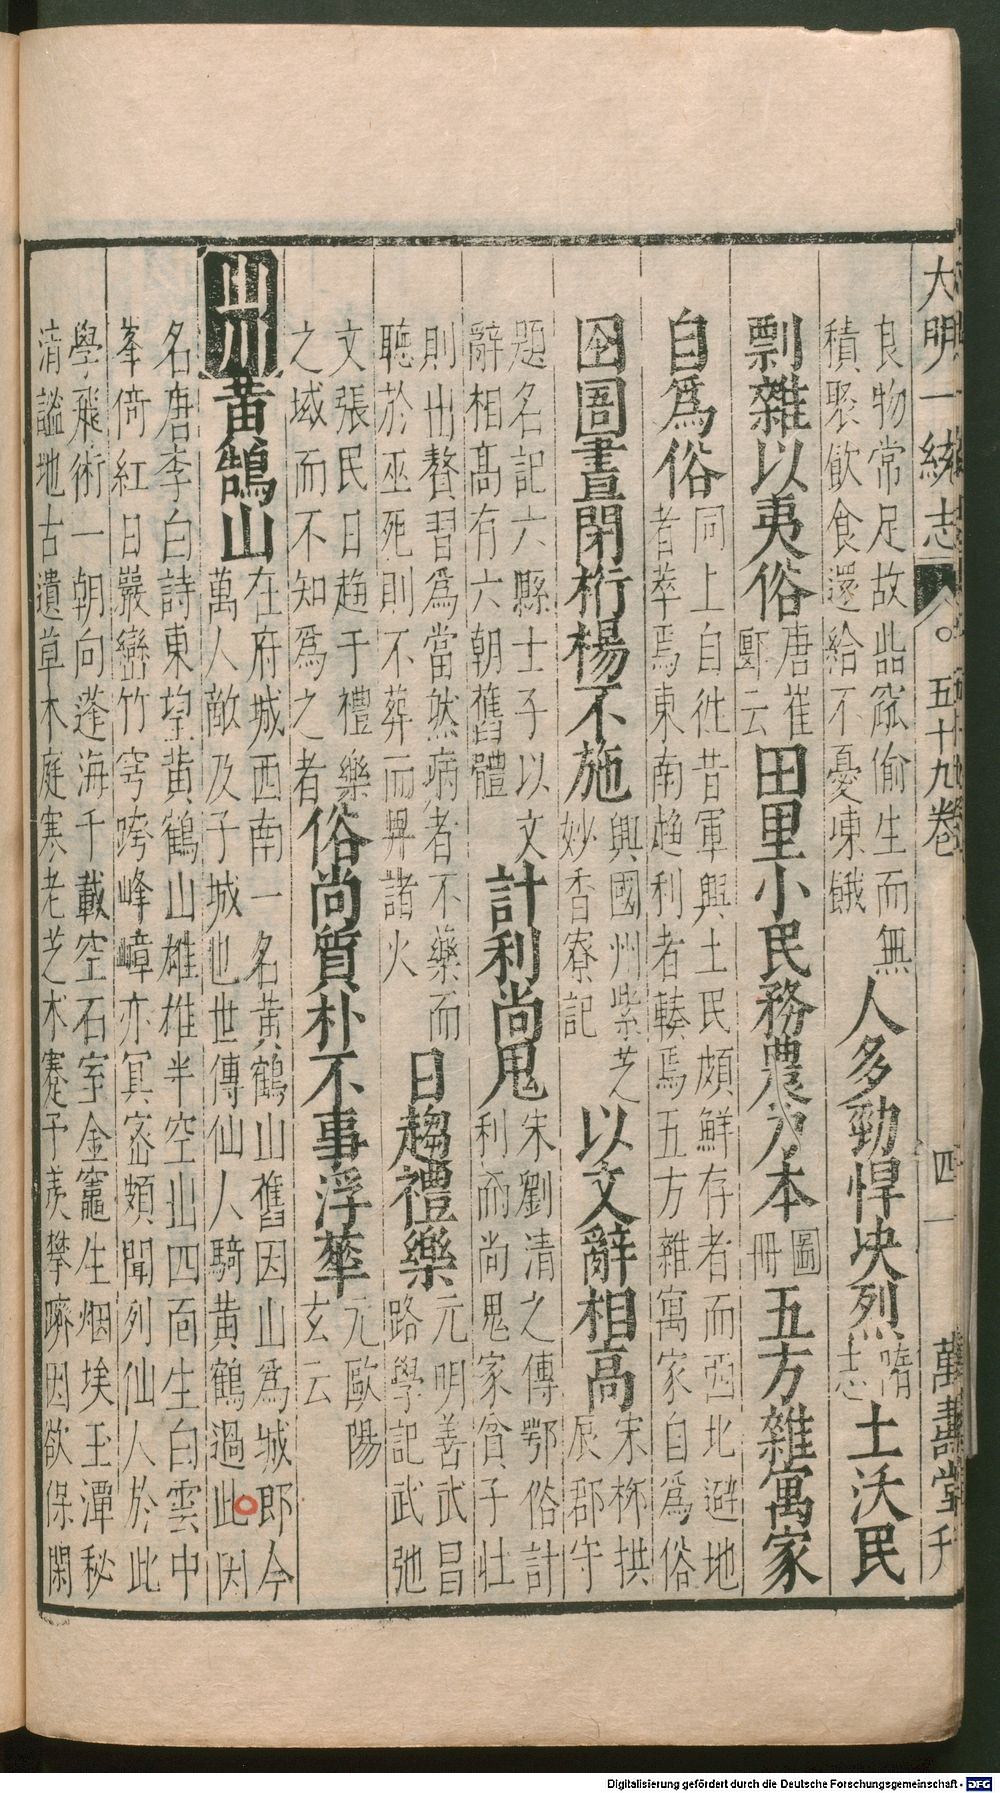 大明一統志 五十九卷 四 萬壽堂刊
良物常足故呰窳偷生而無
積聚飲食還給不憂凍餓
人多勁悍决烈
隋
志
土沃民
剽雜以夷俗
唐崔
郾云
田里小民務農為本
圖
冊
五方雜寓家
自爲俗
同上自徃昔軍興土民頗鮮存者而西北避地
者萃焉東南趋利者輳焉五方雜寓家自爲俗
囹圄晝閉桁楊不施
興國州紫芝
妙香寮記
以文辭相高
宋柳拱
辰郡守
題名記六縣士子以文
辭相高有六朝舊體
計利尚鬼
宋劉清之傳鄂俗計
利而尚鬼家貧子壯
則出贅習爲當然病者不藥而
聽於巫死則不葬而畀諸火
日趨禮樂
元明善武昌
路學記武弛
文張民日趋于禮樂
之域而不知爲之者
俗尚質朴不事浮華
元歐陽
玄云
山川
黃鵠山
在府城西南一名黃鶴山舊因山爲城郎今
萬人敵及子城也世傳仙人騎黃鶴過此因
名唐李白詩東望黃鶴山雄雄半空出四面生白雲中
峯倚紅日巖巒竹穹跨峰嶂亦冥密頗聞列仙人於此
學飛術一朝向蓬海千載空石室金竈生烟埃玉潭秘
清謐地古遺草木庭寒老芝术蹇予羨攀躋因欲保閑
Digitalisierung gefördert durch die Deutsche Forschungsgemeinschaft - DFG